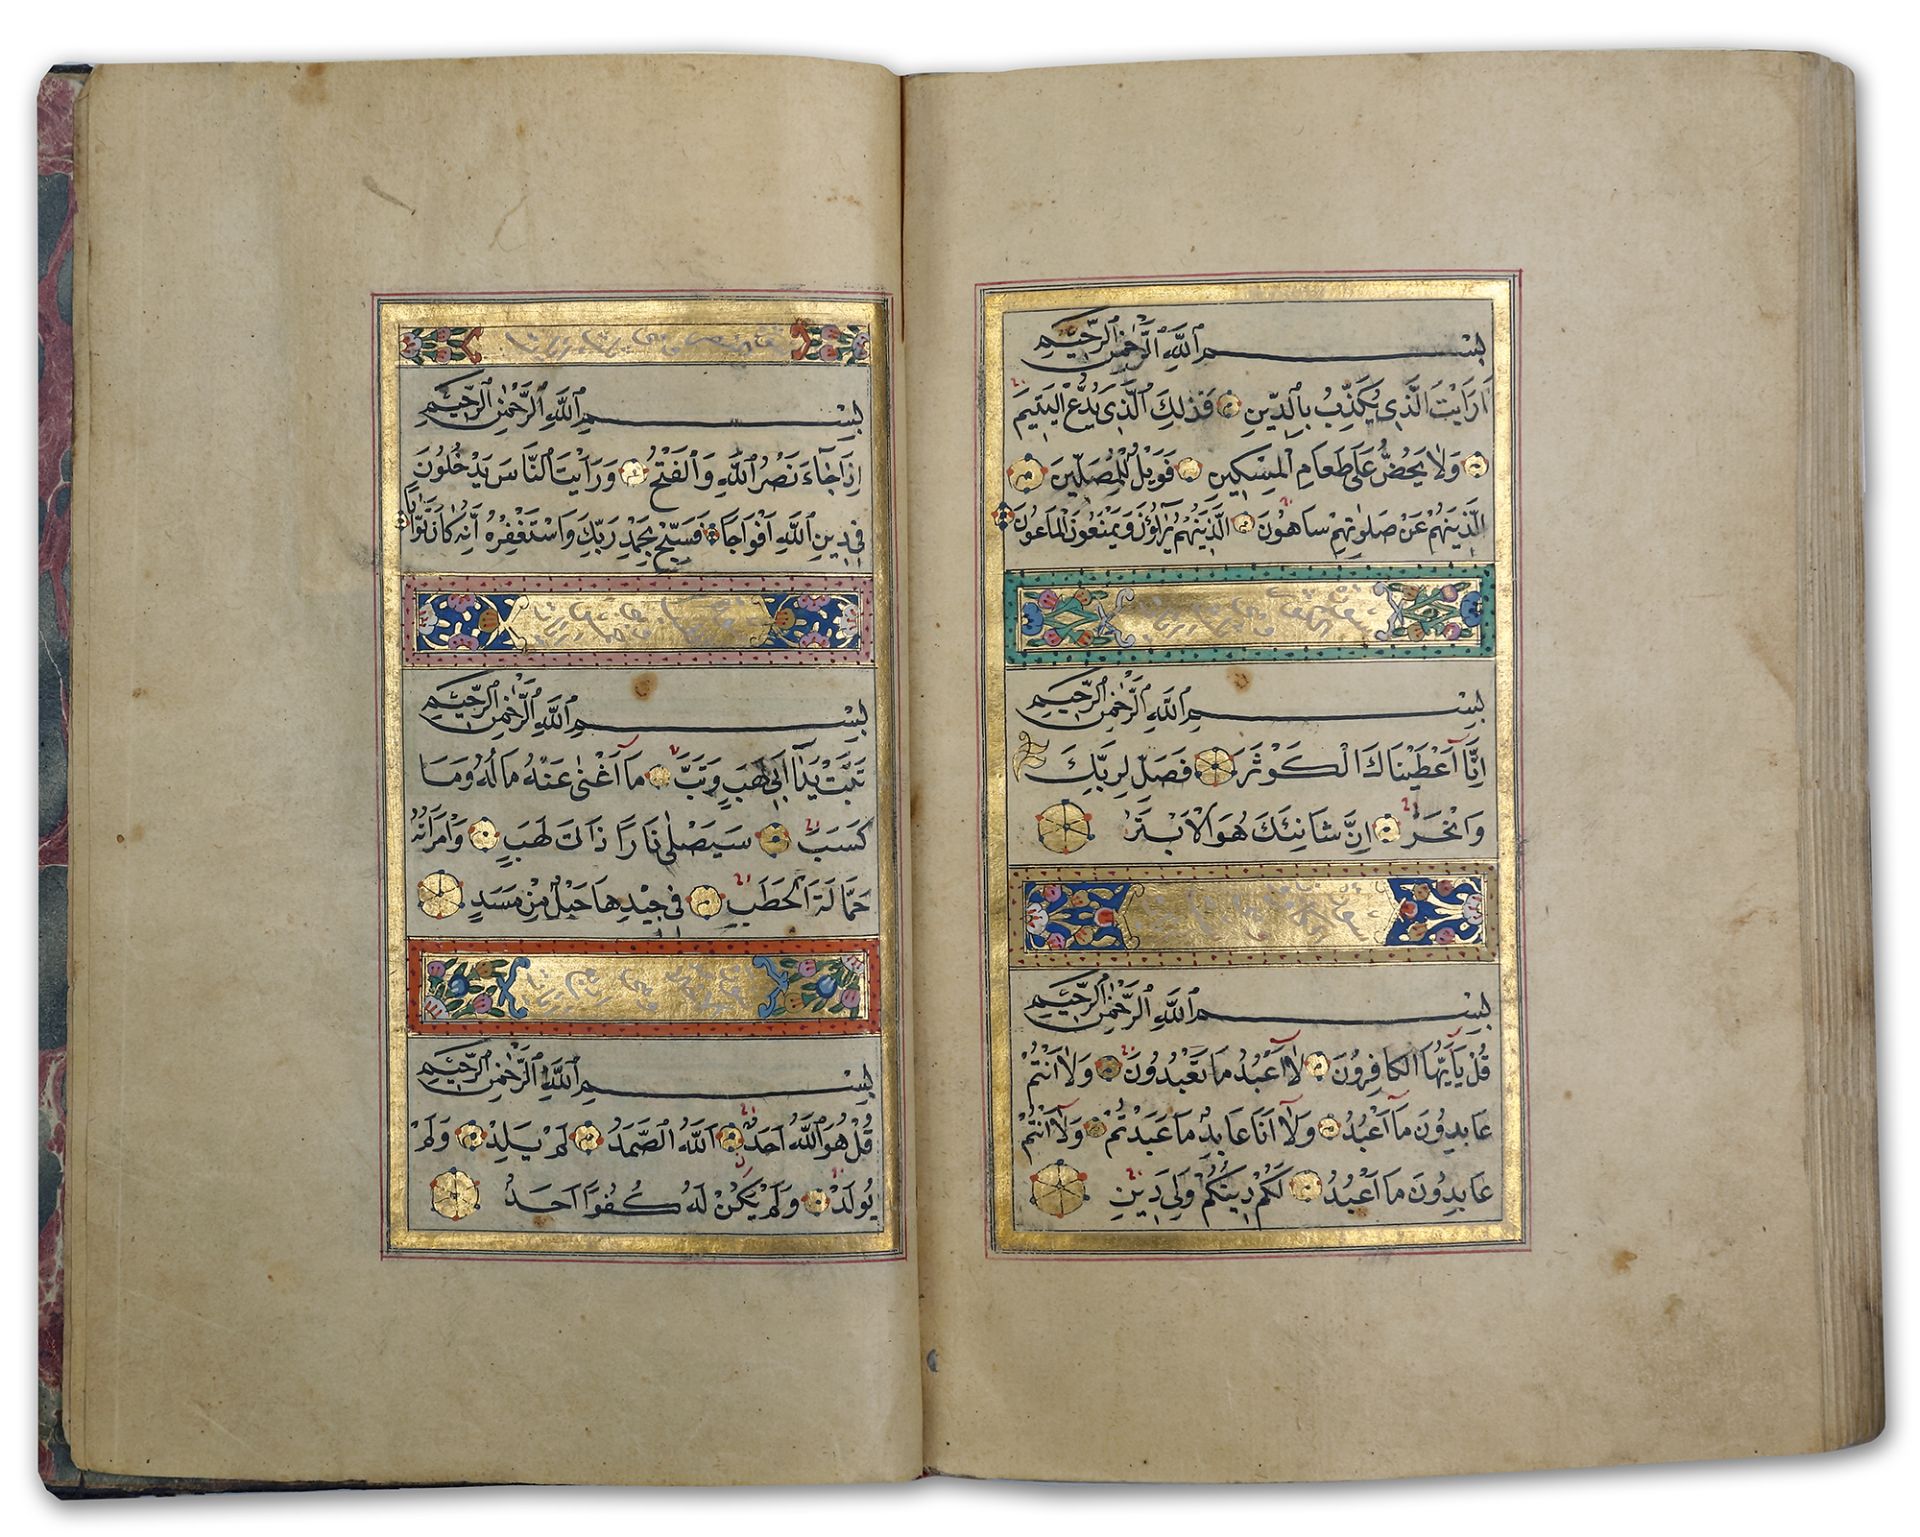 بِسْمِ ٱللَّهِ ٱلرَّحْمٰنِ ٱلرَّحِيمِ
اَرَاَيْتَ الَّذِى يُكَذِّبُ بِالدِّينِ فَذٰلِكَ الَّذِى يَدُعُّ الْيَتِيمَ
وَلَا يَحُضُّ عَلَى طَعَامِ الْمِسْكِينِ فَوَيْلٌ لِلْمُصَلِّينَ
الَّذِينَ هُمْ عَنْ صَلَوتِهِمْ سَاهُونَ الَّذِينَ هُمْ يُرَاؤُنَ وَيَمْنَعُونَ الْمَاعُونَ
بِسْمِ ٱللَّهِ ٱلرَّحْمٰنِ ٱلرَّحِيمِ
اِنَّا اَعْطَيْنَاكَ الْكَوْثَرَ فَصَلِّ لِرَبِّكَ
وَانْحَرْ اِنَّ شَانِئَكَ هُوَ الْاَبْتَرُ
بِسْمِ ٱللَّهِ ٱلرَّحْمٰنِ ٱلرَّحِيمِ
قُلْ يَا اَيُّهَا الْكَافِرُونَ لَا اَعْبُدُ مَا تَعْبُدُونَ وَلَا اَنْتُمْ
عَابِدُونَ مَا اَعْبُدُ وَلَا اَنَا عَابِدٌ مَا عَبَدْتُمْ وَلَا اَنْتُمْ
عَابِدُونَ مَا اَعْبُدُ لَكُمْ دِينُكُمْ وَلِىَ دِينِ
بِسْمِ ٱللَّهِ ٱلرَّحْمٰنِ ٱلرَّحِيمِ
اِذَا جَاءَ نَصْرُ اللَّهِ وَالْفَتْحُ وَرَاَيْتَ النَّاسَ يَدْخُلُونَ
فِى دِينِ اللَّهِ اَفْوَاجًا فَسَبِّحْ بِحَمْدِ رَبِّكَ وَاسْتَغْفِرْهُ اِنَّهُ كَانَ تَوَّابًا
بِسْمِ ٱللَّهِ ٱلرَّحْمٰنِ ٱلرَّحِيمِ
تَبَّتْ يَدَا اَبِى لَهَبٍ وَتَبَّ مَا اَغْنٰى عَنْهُ مَالُهُ وَمَا
كَسَبَ سَيَصْلٰى نَارًا ذَاتَ لَهَبٍ وَامْرَاَتُهُ
حَمَّالَةَ الْحَطَبِ فِى جِيدِهَا حَبْلٌ مِنْ مَسَدٍ
بِسْمِ ٱللَّهِ ٱلرَّحْمٰنِ ٱلرَّحِيمِ
قُلْ هُوَ اللَّهُ اَحَدٌ اَللَّهُ الصَّمَدُ لَمْ يَلِدْ وَلَمْ
يُولَدْ وَلَمْ يَكُنْ لَهُ كُفُوًا اَحَدٌ